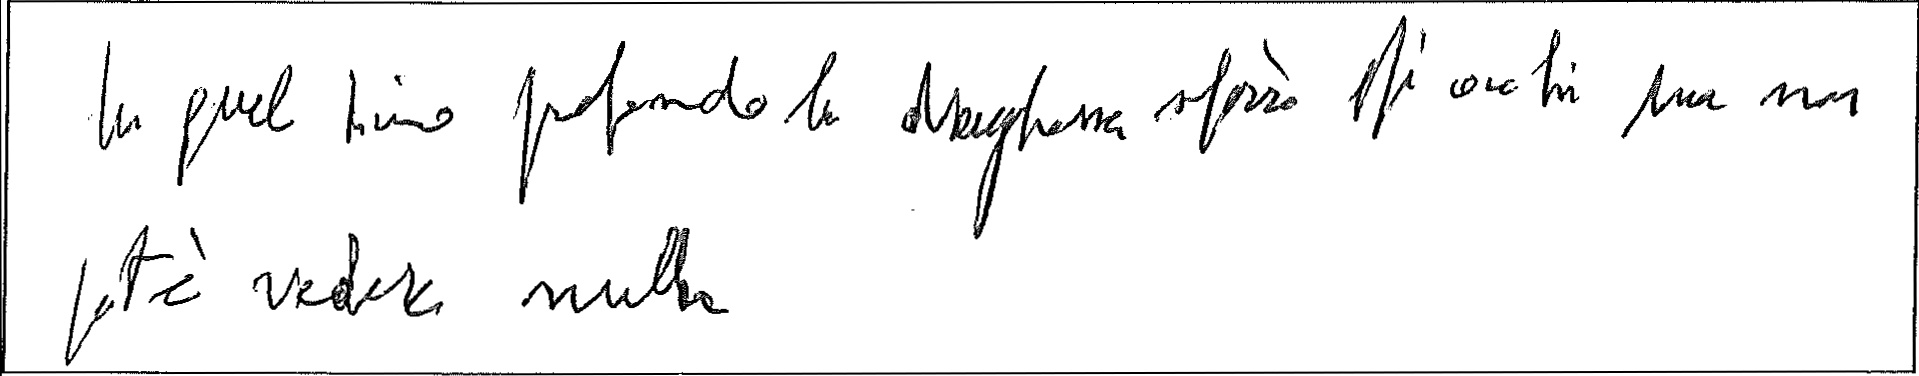 In quel tino profondo la draghessa sforzò gli occhi ma non
potè vedere nulla